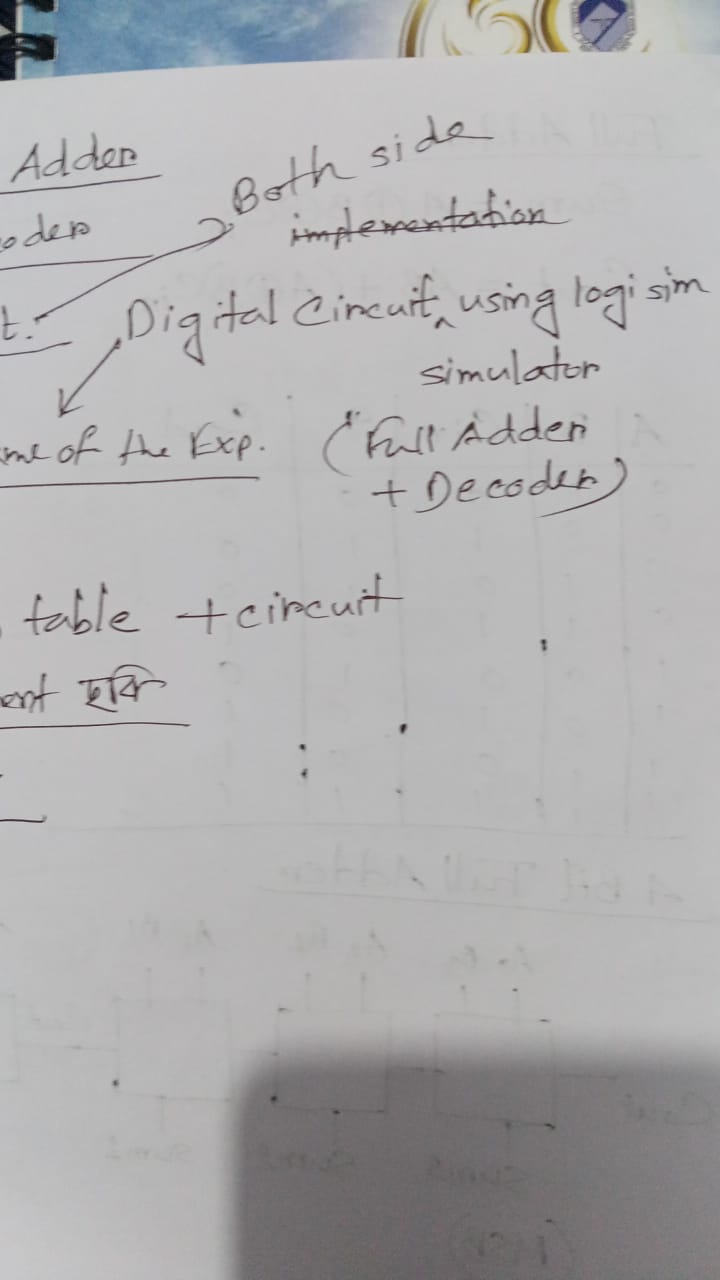 Adder
Both side
oder
implementation
t.
Digital Circuit, using logisim
simulator
me of the Exp. ("Full Adder
+ Decoder)
table + circuit
ent ছবি